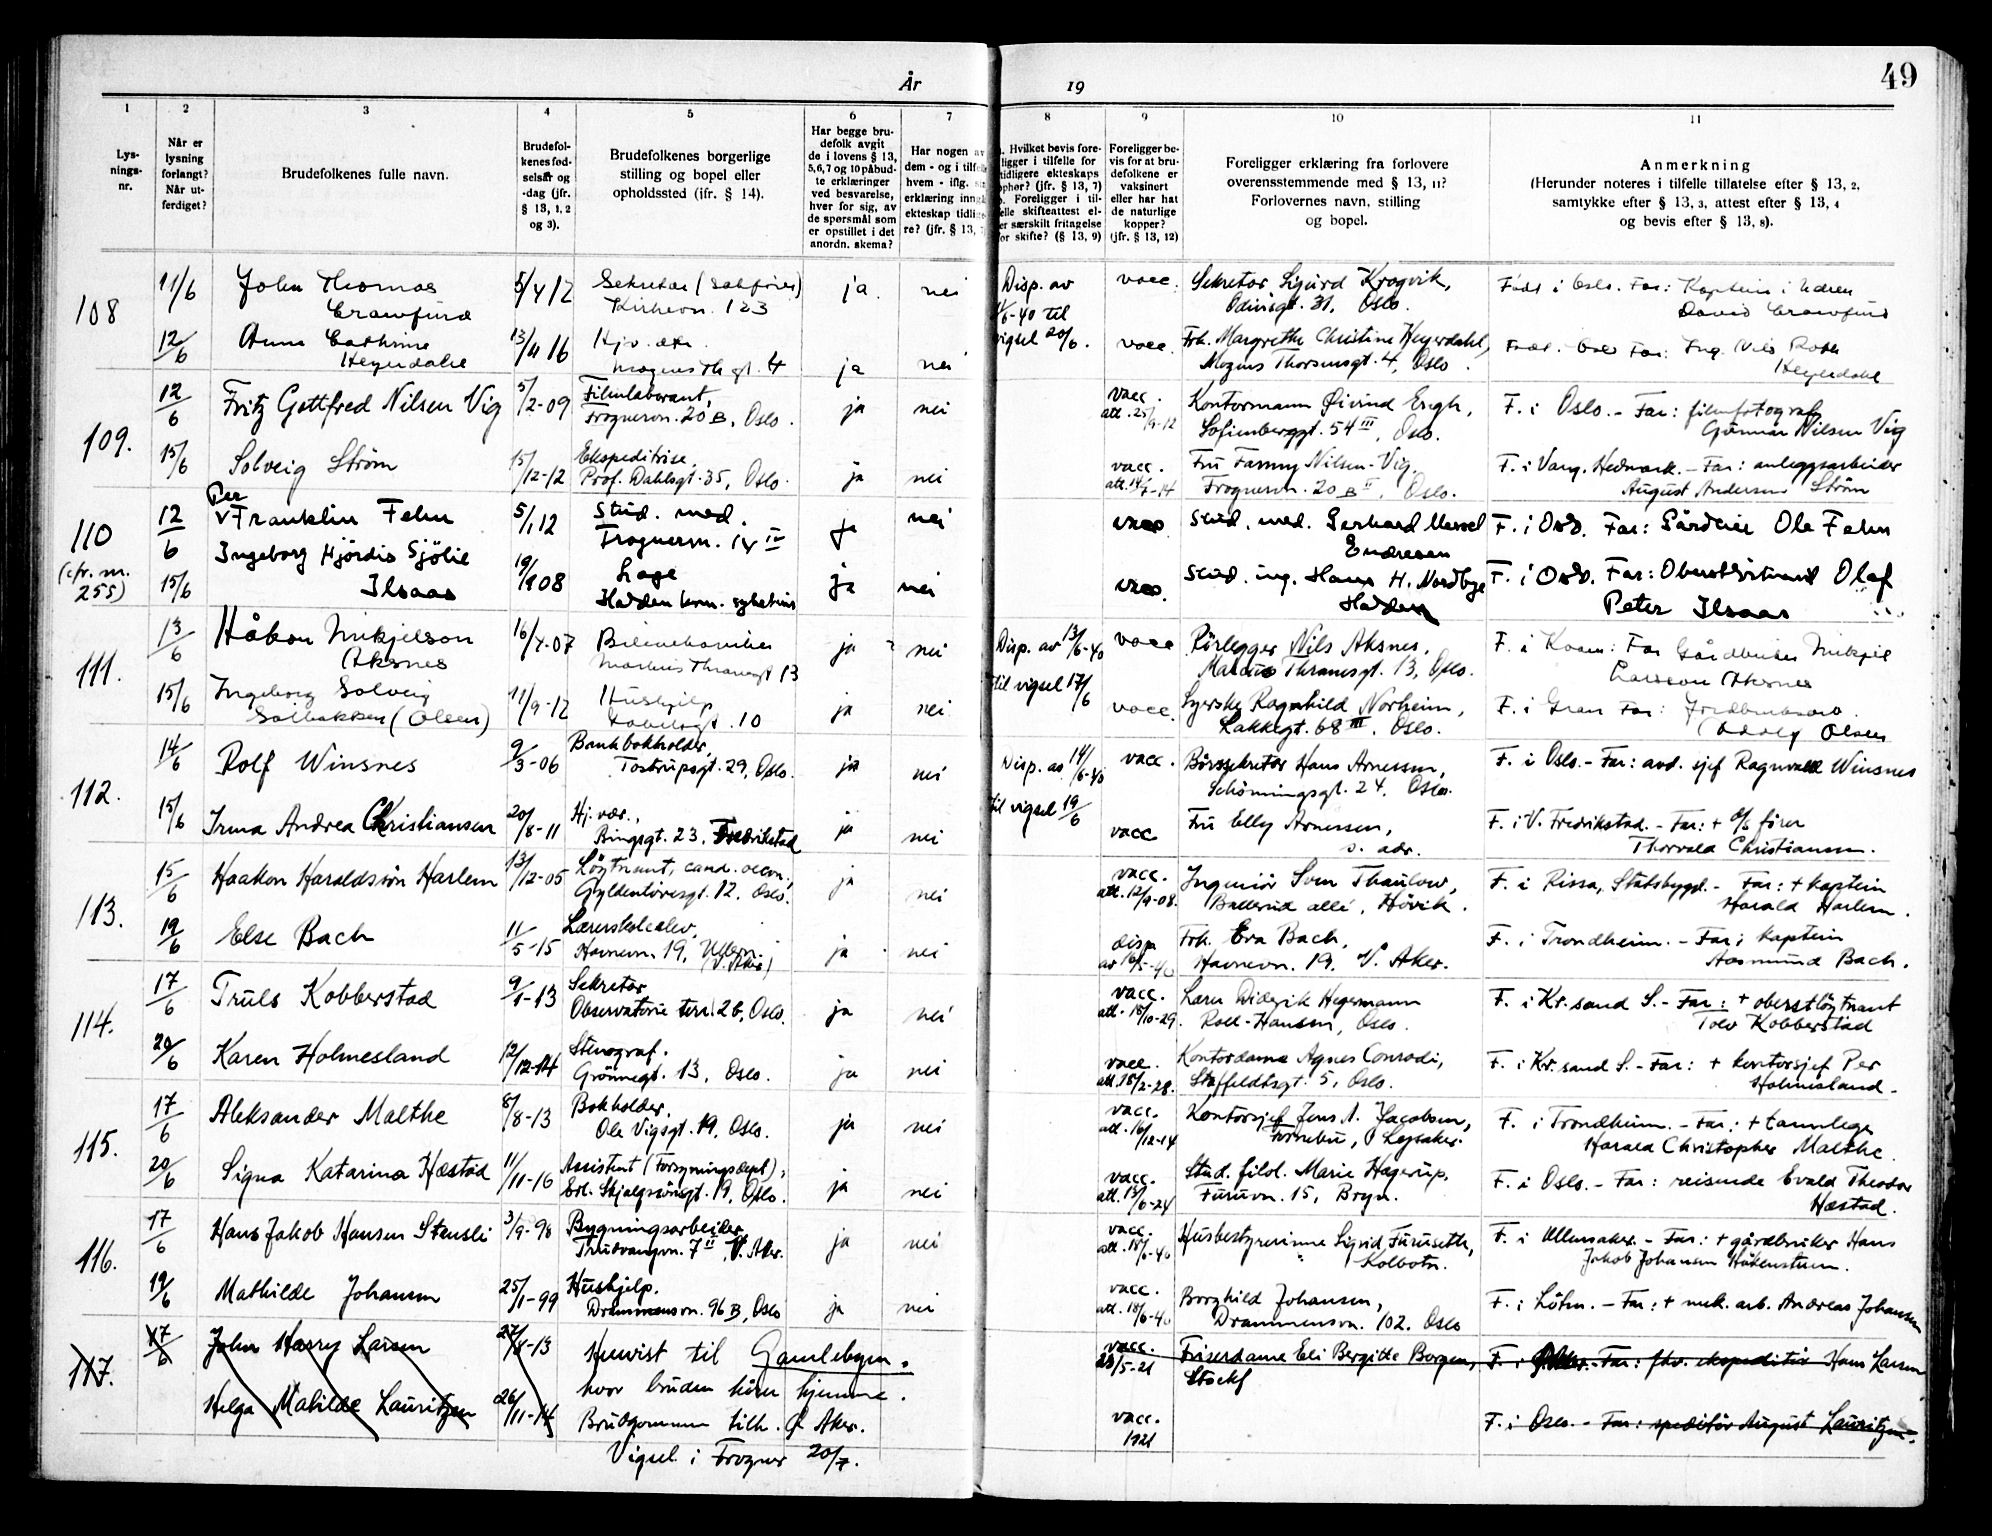 År 19
49
1 2 3 4 5 6 7 8 9 10 11
Lys-
nings-
nr.
Når er
lysning
forlangt?
Når ut-
ferdiget?
Brudefolkenes fulle navn.
Brudefol-
kenes fød-
selsår og
-dag (jfr.
§ 13, 1, 2
og 3).
Brudefolkenes borgerlige
stilling og bopel eller
opholdssted (jfr. § 14).
Har begge bru-
defolk avgit
de i lovens § 13,
5,6,7 og 10 påbud-
te erklæringer
ved besvarelse,
hver for sig, av
de spørsmål som
er opstillet i det
anordn. skema?
Har nogen av
dem - og i tilfelle
hvem - iflg.
erklæring inngått
ekteskap tidlige-
re? (jfr. § 13,
Hvilket bevis fore-
ligger i tilfelle for
tidligere ekteskaps
ophør? (jfr. § 13, 7)
Foreligger i til-
felle skifteattest el-
er særskilt fritagelse
for skifte? (§ 13, 9)
Foreligger be-
vis for at bru-
defolkene er
vaksinert
eller har hat
de naturlige
kopper?
(jfr. § 13, 12)
Foreligger erklæring fra forlovere
overensstemmende med § 13, 11?
Forlovernes navn, stilling
og bopel.
Anmerkning
(Herunder noteres i tilfelle tillatelse efter § 13, 2,
samtykke efter § 13, 3, attest efter § 13, 4
og bevis efter § 13, 8).
108 11/6 John Thomas 5/4 12 Sekretær ja nei Disp. av vacc. Sekretær Sigurd Krogvik, Født i Oslo. Far: Kaptein i
Crawfurd Kirkevn. 123 -40 til Odinsgt. 31, Oslo. David Crawfurd
12/6 Anna Cathrine 13/4 16 ja nei vigsel 20/6. vacc. Frk. Margrethe Christine Heyerdahl, Født. Oslo Far: Ing. Nils
Heyerdahl Magnus Th gt. 4 Mogens Thorsensgt. 4, Oslo. Heyerdahl
109. 12/6 Fritz Gottfred Nilsen Vig 5/2-09 Filmlaborant, ja nei vacc. Kontormann Øivind Engh, F. i Oslo. - Far: filmfotograf
Frognervn. 20 B, Oslo. att. 25/9-12 Sofienberggt. 54 III, Oslo. Gunnar Nilsen Vig
15/6 Solveig Strøm 15/12-12 Ekspeditrise, ja nei vacc. Fru Fanny Nilsen-Vig, F. i Vang, Hedmark. - Far: anleggsarbeider
Prof. Dahlsgt. 35, Oslo. att. 14/7-14 Frognervn. 20 B II, Oslo. August Andersen Strøm
110 12/6 Per
v Franklin Fehn 5/1 12 Stud. med. ja nei vacc Stud. med. Gerhard Messel F. i Oslo. Far: Gårdeier Ole Fehn
Frognervn. 14 IV Endresen
(cfr. nr.
255) 15/6 Ingeborg Hjördis Sjölie 19/8 08 Lege ja nei vacc. Stud. ing. Hans H. Nordbye F. i Oslo. Far: Oberstløitnant Olaf
Ilsaas Hadden Peter Ilsaas
111. 13/6 Håkon Mikjelson 16/7-07 ja nei Disp. av 13/6-40 vacc Rørlegger Nils Aksnes, F. i Far Gårdbruker Mikjel
Aksnes Markus Thranesgt 13 Marcus Thranesgt. 13, Oslo. Larsson Aksnes
15/6 Ingeborg Solveig 11/9-12 Hushjelp ja nei til vigsel 17/6 vacc. Syerske Ragnhild Norheim, F. i Gran Far:
Solbakken (Olsen) gt. 10 Lakkegt. 68 III, Oslo. Olsen
112. 14/6 Rolf Winsnes 9/3-06 Bankbokholder, ja nei Disp. av 14/6-40 vacc. Børssekretær Hans Arnessen, F. i Oslo. - Far: avd. sjef Ragnvald Winsnes
Tostrupsgt. 29, Oslo. Schönningsgt. 24, Oslo.
15/6 Irma Andrea Christiansen 20/8-11 Hj. vær., ja nei til vigsel 19/6 vacc Fru Elly Arnessen, F. i V. Fredrikstad. - Far: + fører
Bingsgt. 23, Fredrikstad s. adr. Thorvald Christiansen.
113. 15/6 Haakon Haraldssøn Harlem 13/12-05 Løytnant, cand. oecon., ja nei vacc. Ingeniør Sven Thaulow, F. i Rissa, Stadsbygd. - Far: + kaptein
Gyldenløvesgt. 12, Oslo. att. 12/9-08. Ballerud allé, Høvik. Harald Harlem.
19/6 Else Bach 11/5-15 Lærerskoleelev, ja nei disp. Frk. Eva Bach, F. i Trondheim. - Far: kaptein
Havnevn. 19, Ullern.
(V. Aker) av 16/5-40 Havnevn. 19, V. Aker. Aasmund Bach.
114. 17/6 Truls Kobberstad 9/1-13 Sekretær ja nei vacc. Lærer Diderik Hegermann F. i Kr.sand S. - Far: + oberstløytnant
Observatorie terr. 2b, Oslo. att. 18/10-29. Roll-Hansen, Oslo. Tolv Kobberstad
20/6 Karen Holmesland 12/12-14 Stenograf. ja nei vacc. Kontordame Agnes Conradi, F. i Kr.sand S. - Far: + kontorsjef Per
Grønnegt. 13, Oslo. att. 18/2-28. Staffeldtsgt. 5, Oslo. Holmesland -
115. 17/6 Aleksander Malthe 8/8-13 Bokholder, ja nei vacc. Kontorsjef Jens A. Jacobsen, F. i Trondheim. - Far: + tannlege
Ole Vigsgt. 19, Oslo. att. 16/12-14 Fornebu, Lysaker. Harald Christopher Malthe.
20/6 Signa Katarina Hæstad 11/11-16 Assistent (Forsyningsdept), ja nei vacc. Stud. filol. Marie Hagerup, F. i Oslo. - Far: reisende Evald Theodor
Erl. Skjalgssønsgt. 19, Oslo. att. 13/6-24 Furuvn. 15, Bryn. Hæstad.
116. 17/6 Hans Jakob Hansen Stensli 3/9-98 Bygningsarbeider ja nei vacc. Husbestyrerinne Sigrid Furuseth, F. i Ullensaker. - Far: + gårdbruker Hans
Trudvangvn. 7 II, V. Aker. att. 18/6-40 Kolbotn. Jakob Johansen Håkenstun.
19/6 Mathilde Johansen 25/1-99 Hushjelp. ja nei vacc. Borghild Johansen, F. i Løten. - Far: + mek. arb. Andreas Johansen
Drammensvn. 96 B, Oslo att. 18/6-40 Drammensvn. 102. Oslo
117. 17/6 John Harry Larsen 27/8-13 Henvist til Gamlebyen. vacc. Friserdame Eli Bergitte Borgen, F. i Far: fhv. ekspeditør Hans Larsen
hvor bruden hører hjemme. 28/5-21 Stockf
Helga Matilde Lauritzen 26/11-14 Brudgommen tilh. Ø. Aker. vacc. F. i Oslo. - Far: speditør August Lauritzen.
1921
Vigsel i Frogner 20/7.